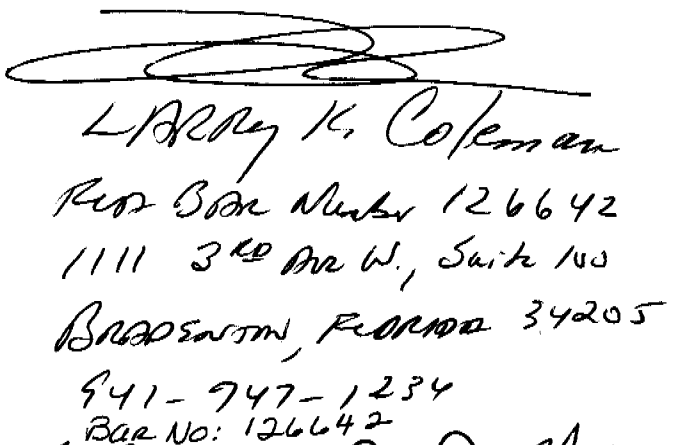 LARRY K. Coleman
FLA BAR Number 126642
1111 3RD Ave W., Suite 100
BRADENTON, FLORIDA 34205
941-747-1234
Bar No: 126642